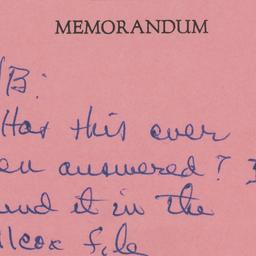 MEMORANDUM
/B:
Has this ever
en answered? I
und it in the
lcox file